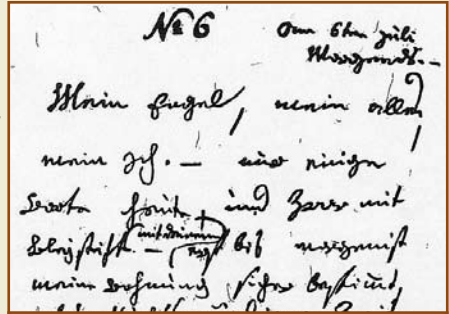 № 6
am 6ten juli
Morgends. –
Mein Engel, mein alles,
mein Ich. – nur einige
Worte heute, und zwar mit
Bleystift – (mit deinem)
erst bis morgen ist
meine wohnung sicher bestimmt,